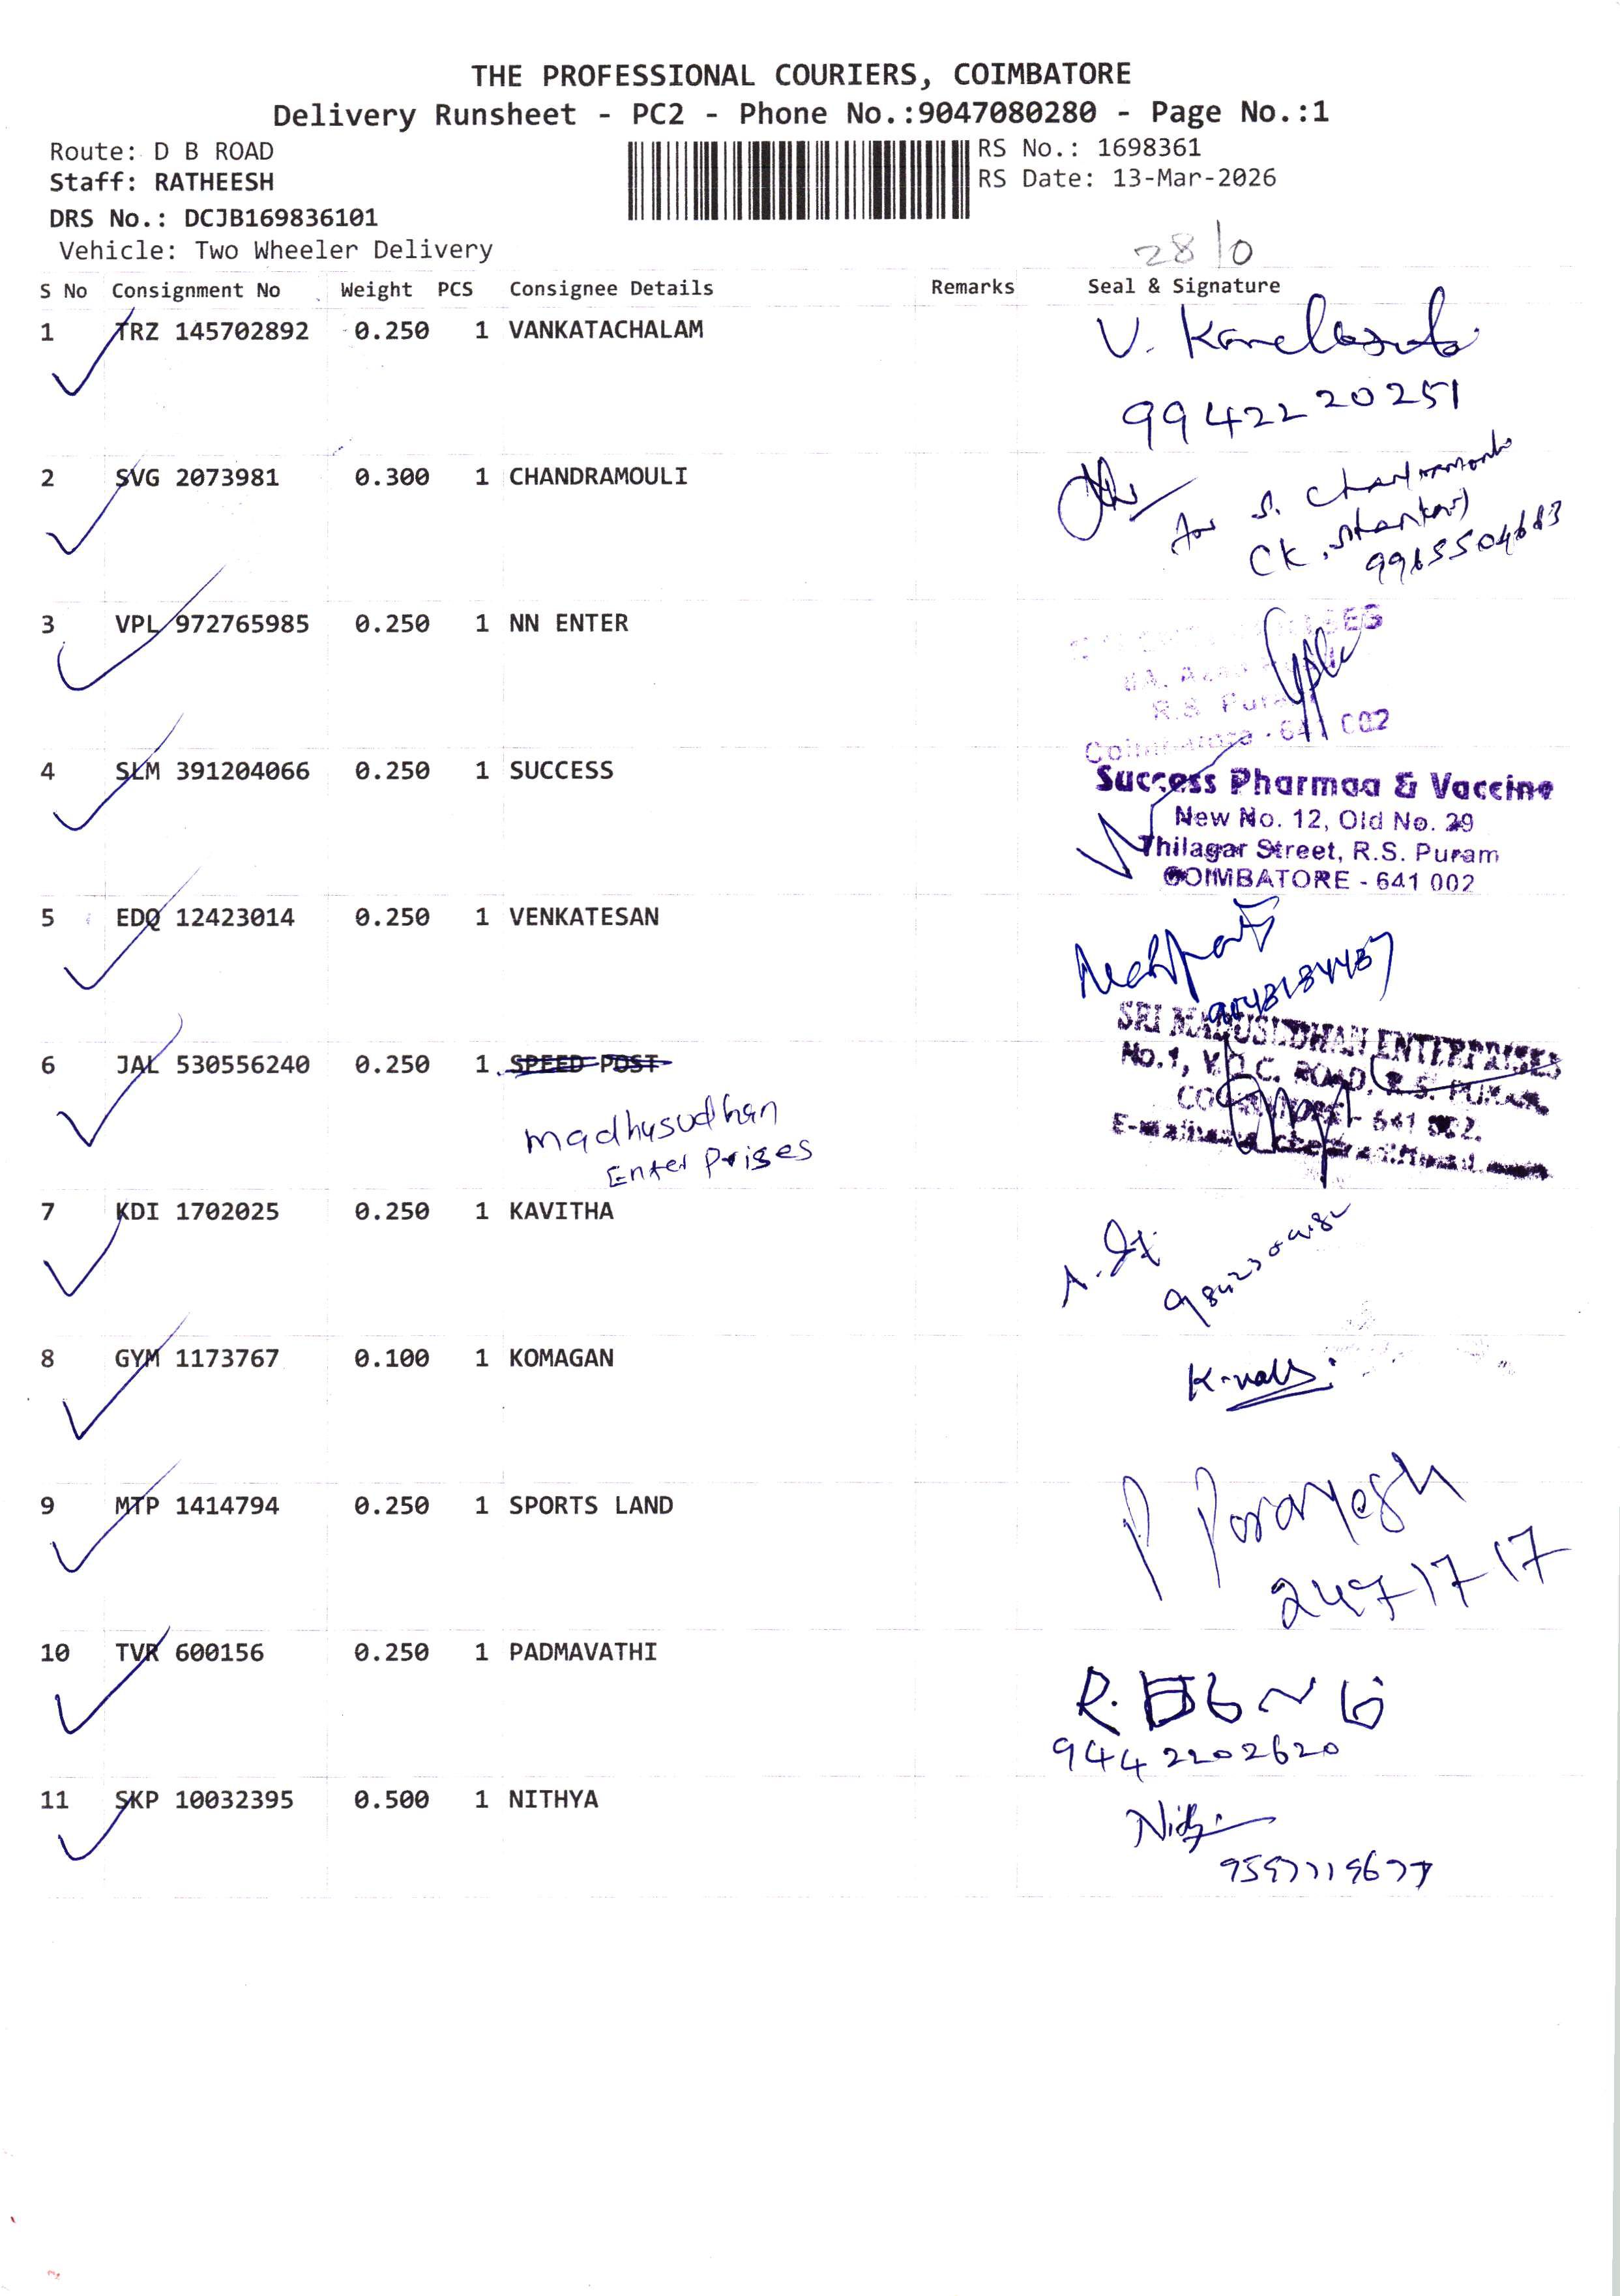 THE PROFESSIONAL COURIERS, COIMBATORE
Delivery Runsheet - PC2 - Phone No.:9047080280 - Page No.:1
Route: D B ROAD
RS No.: 1698361
Staff: RATHEESH
RS Date: 13-Mar-2026
DRS No.: DCJB169836101
Vehicle: Two Wheeler Delivery
28/0
S No Consignment No Weight PCS Consignee Details Remarks Seal & Signature
1 TRZ 145702892 0.250 1 VANKATACHALAM
V.
9942220251
2 SVG 2073981 0.300 1 CHANDRAMOULI
for S.
3 VPL 972765985 0.250 1 NN ENTER
R.S
641 002
4 SLM 391204066 0.250 1 SUCCESS
Success Pharmaa & Vaccine
New No. 12, Old No. 29
Thilagar Street, R.S. Puram
COIMBATORE - 641 002
5 EDQ 12423014 0.250 1 VENKATESAN
6 JAL 530556240 0.250 1 SPEED POST
madhusudhan
Enter prises
SRI MADUSUDHAN ENTERPRISES
No.1, V.O.C. ROAD, R.S. PURAM,
641 002.
7 KDI 1702025 0.250 1 KAVITHA
8 GYM 1173767 0.100 1 KOMAGAN
9 MTP 1414794 0.250 1 SPORTS LAND
P
2471717
10 TVR 600156 0.250 1 PADMAVATHI
R.
9442202620
11 SKP 10032395 0.500 1 NITHYA